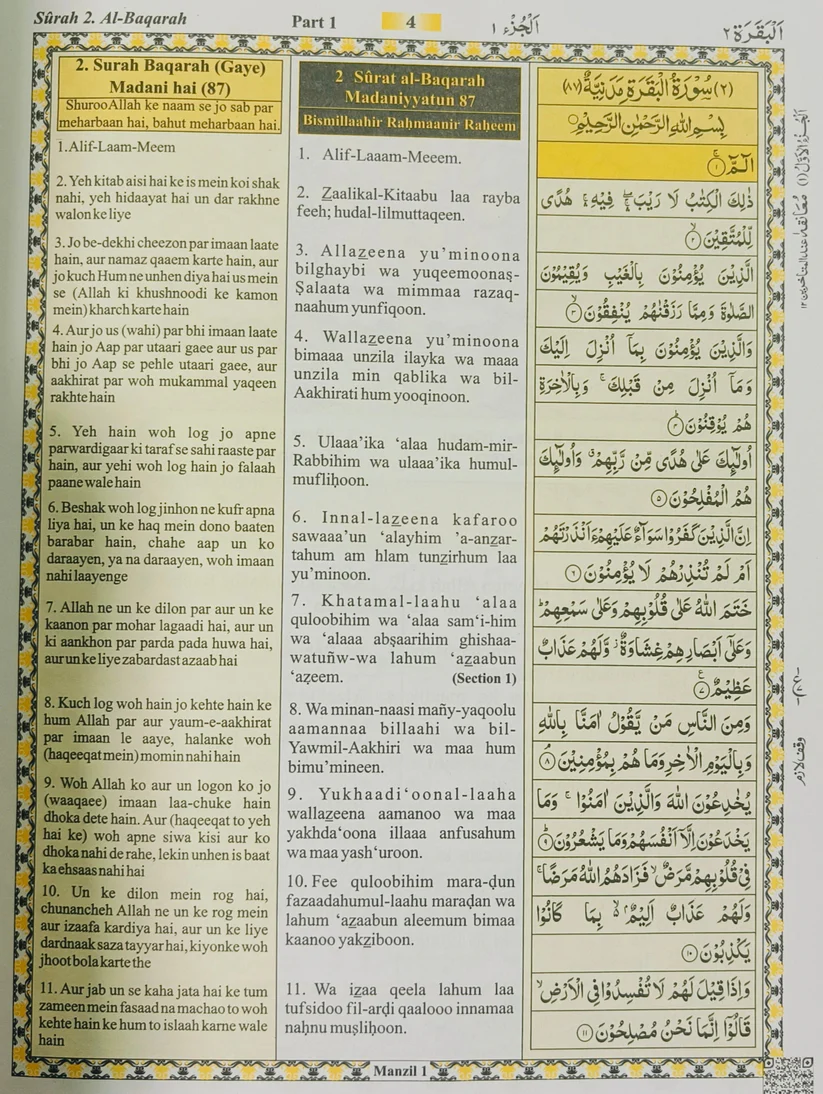 Sûrah 2. Al-Baqarah
Part 1
4
اَلْجُزْء ١
اَلْبَقَرَة ٢
2. Surah Baqarah (Gaye)
Madani hai (87)
ShurooAllah ke naam se jo sab par
meharbaan hai, bahut meharbaan hai.
1.Alif-Laam-Meem
2. Yeh kitab aisi hai ke is mein koi shak
nahi, yeh hidaayat hai un dar rakhne
walon ke liye
3. Jo be-dekhi cheezon par imaan laate
hain, aur namaz qaaem karte hain, aur
jo kuch Hum ne unhen diya hai us mein
se (Allah ki khushnoodi ke kamon
mein) kharch karte hain
4. Aur jo us (wahi) par bhi imaan laate
hain jo Aap par utaari gaee aur us par
bhi jo Aap se pehle utaari gaee, aur
aakhirat par woh mukammal yaqeen
rakhte hain
5. Yeh hain woh log jo apne
parwardigaar ki taraf se sahi raaste par
hain, aur yehi woh log hain jo falaah
paane wale hain
6. Beshak woh log jinhon ne kufr apna
liya hai, un ke haq mein dono baaten
barabar hain, chahe aap un ko
daraayen, ya na daraayen, woh imaan
nahi laayenge
7. Allah ne un ke dilon par aur un ke
kaanon par mohar lagaadi hai, aur un
ki aankhon par parda pada huwa hai,
aur un ke liye zabardast azaab hai
8. Kuch log woh hain jo kehte hain ke
hum Allah par aur yaum-e-aakhirat
par imaan le aaye, halanke woh
(haqeeqat mein) momin nahi hain
9. Woh Allah ko aur un logon ko jo
(waaqaee) imaan laa-chuke hain
dhoka dete hain. Aur (haqeeqat to yeh
hai ke) woh apne siwa kisi aur ko
dhoka nahi de rahe, lekin unhen is baat
ka ehsaas nahi hai
10. Un ke dilon mein rog hai,
chunancheh Allah ne un ke rog mein
aur izaafa kardiya hai, aur un ke liye
dardnaak saza tayyar hai, kiyonke woh
jhoot bola karte the
11. Aur jab un se kaha jata hai ke tum
zameen mein fasaad na machao to woh
kehte hain ke hum to islaah karne wale
hain
2 Sûrat al-Baqarah
Madaniyyatun 87
Bismillaahir Raḥmaanir Raḥeem
1. Alif-Laaam-Meeem.
2. Z̲aalikal-Kitaabu laa rayba
feeh; hudal-lilmuttaqeen.
3. Allaz̲eena yu’minoona
bilghaybi wa yuqeemoonaṣ-
Ṣalaata wa mimmaa razaq-
naahum yunfiqoon.
4. Wallaz̲eena yu’minoona
bimaaa unzila ilayka wa maaa
unzila min qablika wa bil-
Aakhirati hum yooqinoon.
5. Ulaaa’ika ‘alaa hudam-mir-
Rabbihim wa ulaaa’ika humul-
mufliḥoon.
6. Innal-laz̲eena kafaroo
sawaaa’un ‘alayhim ’a-anz̲ar-
tahum am hlam tunz̲irhum laa
yu’minoon.
7. Khatamal-laahu ‘alaa
quloobihim wa ‘alaa sam‘i-him
wa ‘alaaa abṣaarihim ghishaa-
watuñw-wa lahum ‘az̲aabun
‘aẓeem. (Section 1)
8. Wa minan-naasi mañy-yaqoolu
aamannaa billaahi wa bil-
Yawmil-Aakhiri wa maa hum
bimu’mineen.
9. Yukhaadi‘oonal-laaha
wallaz̲eena aamanoo wa maa
yakhda‘oona illaaa anfusahum
wa maa yash‘uroon.
10. Fee quloobihim mara-ḍun
fazaadahumul-laahu maraḍan wa
lahum ‘az̲aabun aleemum bimaa
kaanoo yakz̲iboon.
11. Wa iz̲aa qeela lahum laa
tufsidoo fil-arḍi qaalooo innamaa
naḥnu muṣliḥoon.
(٢) سُوْرَةُ الْبَقَرَةِ مَدَنِيَّةٌ (٨٧)
بِسْمِ اللّٰهِ الرَّحْمٰنِ الرَّحِيْمِ
الٓمّٓ ۚ ١
ذٰلِكَ الْكِتٰبُ لَا رَيْبَ ۛ فِيْهِ ۛ هُدًى
لِّلْمُتَّقِيْنَ ۙ ٢
الَّذِيْنَ يُؤْمِنُوْنَ بِالْغَيْبِ وَيُقِيْمُوْنَ
الصَّلٰوةَ وَمِمَّا رَزَقْنٰهُمْ يُنْفِقُوْنَ ۙ ٣
وَالَّذِيْنَ يُؤْمِنُوْنَ بِمَآ اُنْزِلَ اِلَيْكَ
وَمَآ اُنْزِلَ مِنْ قَبْلِكَ ۚ وَبِالْاٰخِرَةِ
هُمْ يُوْقِنُوْنَ ۗ ٤
اُولٰٓئِكَ عَلٰى هُدًى مِّنْ رَّبِّهِمْ ۗ وَاُولٰٓئِكَ
هُمُ الْمُفْلِحُوْنَ ٥
اِنَّ الَّذِيْنَ كَفَرُوْا سَوَآءٌ عَلَيْهِمْ ءَاَنْذَرْتَهُمْ
اَمْ لَمْ تُنْذِرْهُمْ لَا يُؤْمِنُوْنَ ٦
خَتَمَ اللّٰهُ عَلٰى قُلُوْبِهِمْ وَعَلٰى سَمْعِهِمْ ؕ
وَعَلٰٓى اَبْصَارِهِمْ غِشَاوَةٌ ز وَّلَهُمْ عَذَابٌ
عَظِيْمٌ ٧ ع
وَمِنَ النَّاسِ مَنْ يَّقُوْلُ اٰمَنَّا بِاللّٰهِ
وَبِالْيَوْمِ الْاٰخِرِ وَمَا هُمْ بِمُؤْمِنِيْنَ ۘ ٨
يُخٰدِعُوْنَ اللّٰهَ وَالَّذِيْنَ اٰمَنُوْا ۚ وَمَا
يَخْدَعُوْنَ اِلَّآ اَنْفُسَهُمْ وَمَا يَشْعُرُوْنَ ؕ ٩
فِيْ قُلُوْبِهِمْ مَّرَضٌ ۙ فَزَادَهُمُ اللّٰهُ مَرَضًا ۚ
وَلَهُمْ عَذَابٌ اَلِيْمٌۢ ۙ بِمَا كَانُوْا
يَكْذِبُوْنَ ١٠
وَاِذَا قِيْلَ لَهُمْ لَا تُفْسِدُوْا فِي الْاَرْضِ ۙ
قَالُوْٓا اِنَّمَا نَحْنُ مُصْلِحُوْنَ ١١
وقف لازم
Manzil 1